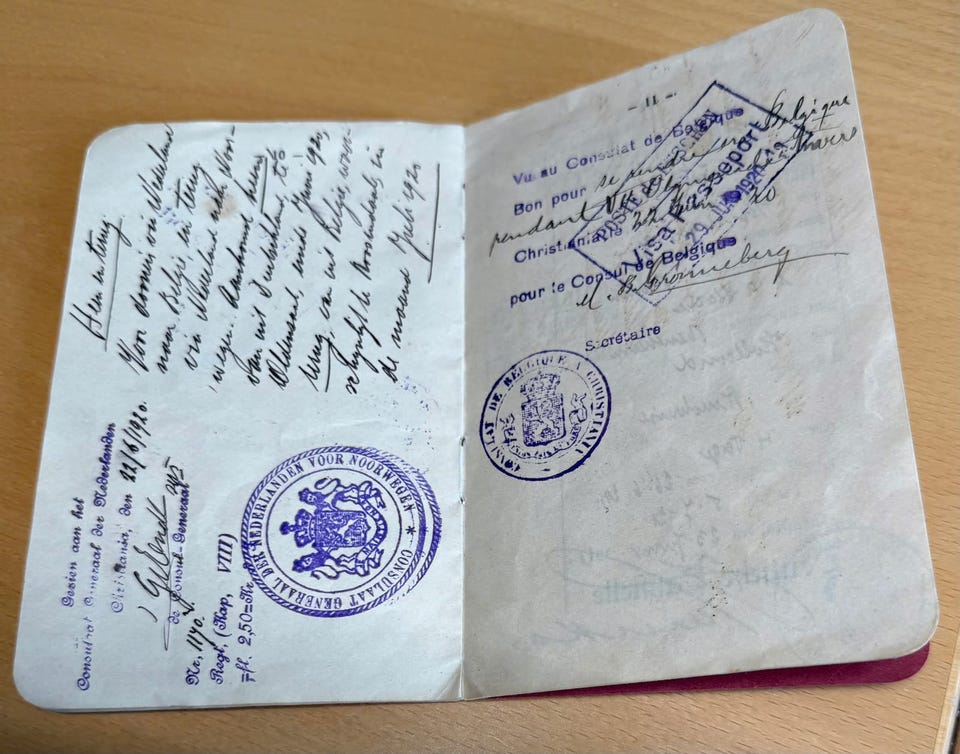 Heen en terug
Voor doorreis via Nederland
naar België, en terug
via Nederland naar Noor-
wegen. Aankomst hier
van uit Duitschland, te
Oldenzaal, einde Juni 1920,
terug van uit België, waar-
schijnlijk te Roosendaal, in
de maand Juli 1920
Gezien aan het
Consulaat Generaal der Nederlanden
Christiania, den 22/6/1920.
de Consul-Generaal
Nr, 1170.
Regl, (Kap, VIII)
=fl. 2,50=Kr.
CONSULAAT GENERAAL DER NEDERLANDEN VOOR NOORWEGEN
- 11 -
Vu au Consulat de Belgique
Bon pour se rendre en Belgique
pendant VII Olympiade à Anvers
Christiania le 22 juin 20
pour le Consul de Belgique
Secrétaire
Visa Passeport
CONSULAT DE BELGIQUE A CHRISTIANIA